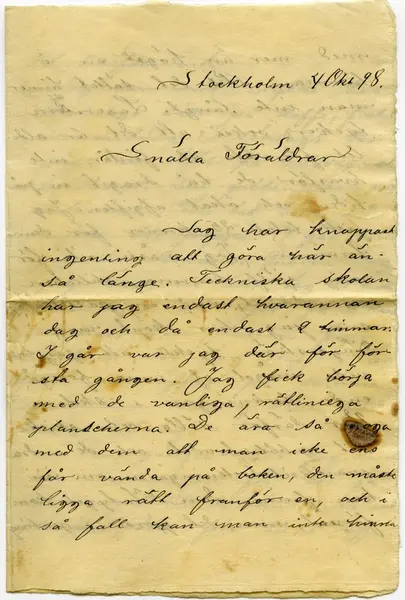 Stockholm 4 Okt 98.
Snälla Föräldrar
Jag har knappast
ingenting att göra här än-
så länge. Teckniska skolan
har jag endast hvarannan
dag och då endast 2 timmar.
I går var jag där för för
sta gången. Jag fick börja
med de vanliga, rätliniga
planscherna. De äro så noga
med dem att man icke ens
får vända på boken, den måste
ligga rätt framför en, och i
så fall kan man inte hinna